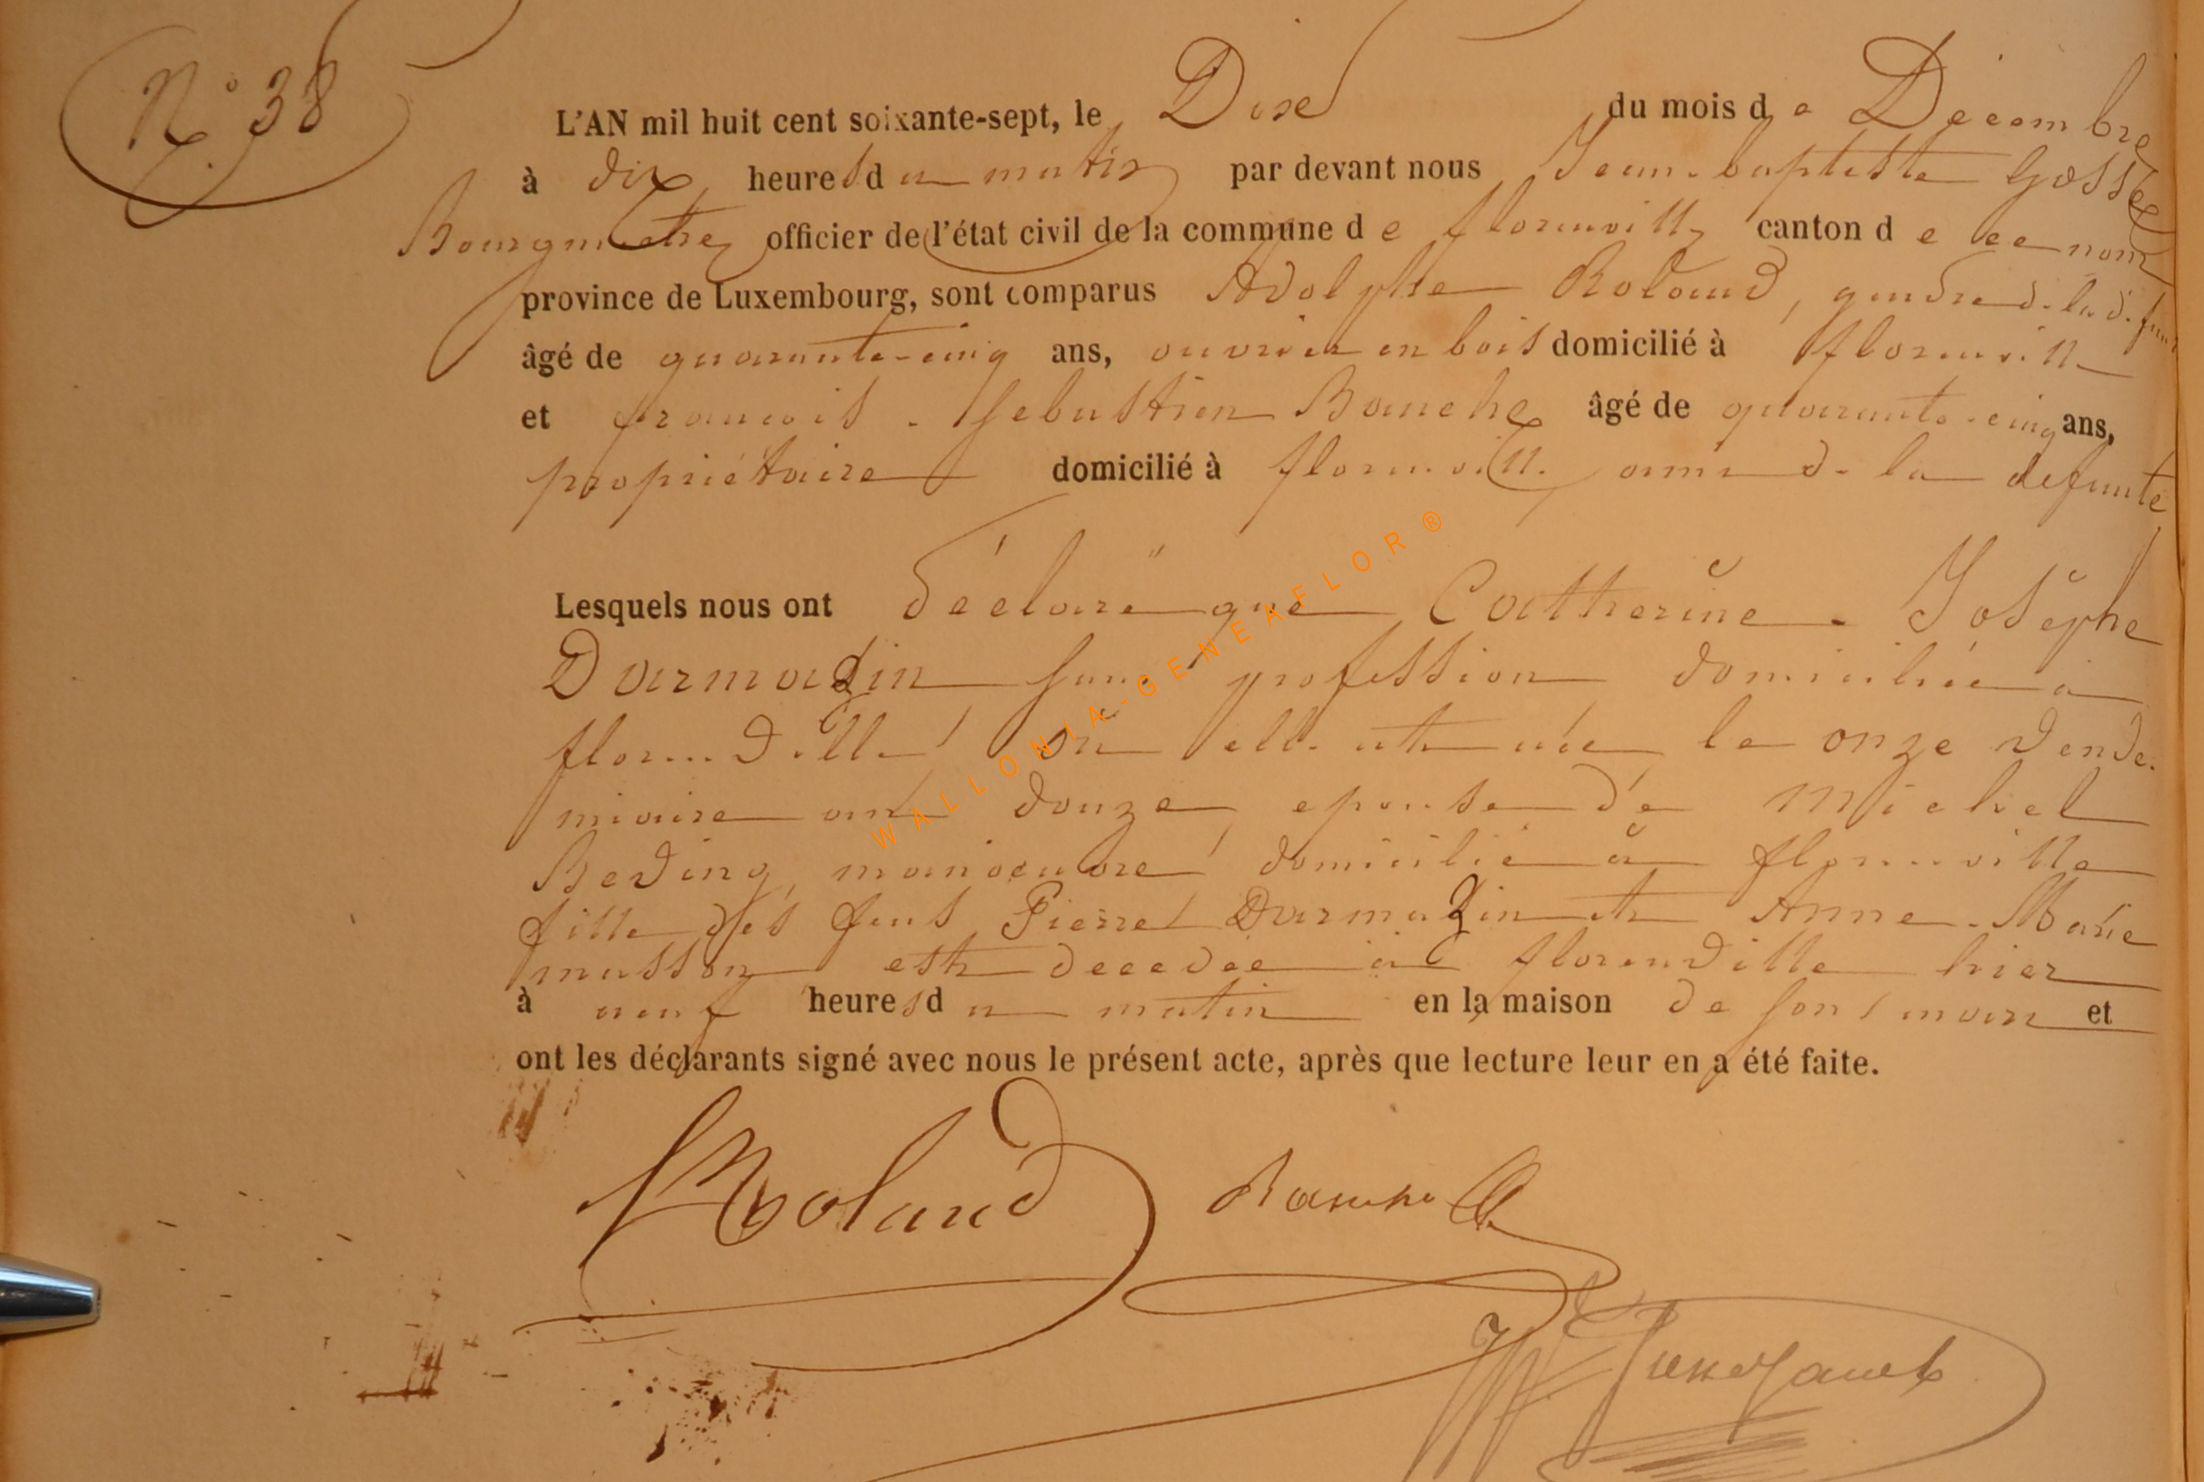 N° 38
L'AN mil huit cent soixante-sept, le Dix du mois de Décembre
à dix heures du matin par devant nous Jean-baptiste Gosse
Bourgmestre officier de l'état civil de la commune de florenville canton de ce nom
province de Luxembourg, sont comparus Adolphe Roland, gendre de la défunte
âgé de quarante-cinq ans, ouvrier en bois domicilié à florenville
et françois-Sebastien Banche âgé de quarante-cinq ans,
propriétaire domicilié à florenville ami de la defunte
Lesquels nous ont déclaré que Catherine-Josephe
Darmazin sans profession domiciliée à
florenville où elle est née le onze Vendé-
miaire an douze epouse de Michel
Beding, manoeuvre domicilié à florenville
fille des feus Pierre Darmazin et Anne-Marie
masson est decedée à florenville hier
à neuf heures du matin en la maison de son mari et
ont les déclarants signé avec nous le présent acte, après que lecture leur en a été faite.
Roland Banche
WALLONIA-GENEAFLOR ®